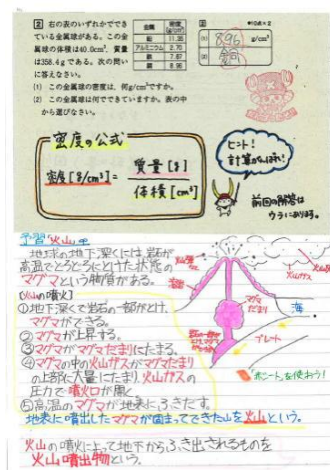 2 右の表のいずれかででき
ている金属球がある。この金
属球の体積は40.0cm³, 質量
は358.4gである。次の問い
に答えなさい。
金属 密度(g/cm³)
鉛 11.35
アルミニウム 2.70
鉄 7.87
銅 8.96
(1) この金属球の密度は, 何g/cm³ですか。
(2) この金属球は何でできていますか。表の中
から選びなさい。
2
(1) 8.96 g/cm³
(2) 銅
密度の公式
密度[g/cm³]=
質量[g]
体積[cm³]
ヒント!
計算がんばれ!
前回の解答は
ウラにあります。
予習 火山
地球の地下深くには、岩石が
高温でどろどろにとけた状態の
マグマという物質がある。
火山の噴火
①地下深くで岩石の一部がとけ、
マグマができる。
②マグマが上昇する。
③マグマがマグマだまりにたまる。
④マグマの中の火山ガスがマグマだまり
の上部に大量にたまり、火山ガスの
圧力で噴火口が開く
⑤高温のマグマが地表にふきだす。
地表に噴出したマグマが固まってできた山を火山という。
火山の噴火によって地下からふき出されるものを
火山噴出物という。
火山ガス
マグマ
だまり
海
プレート